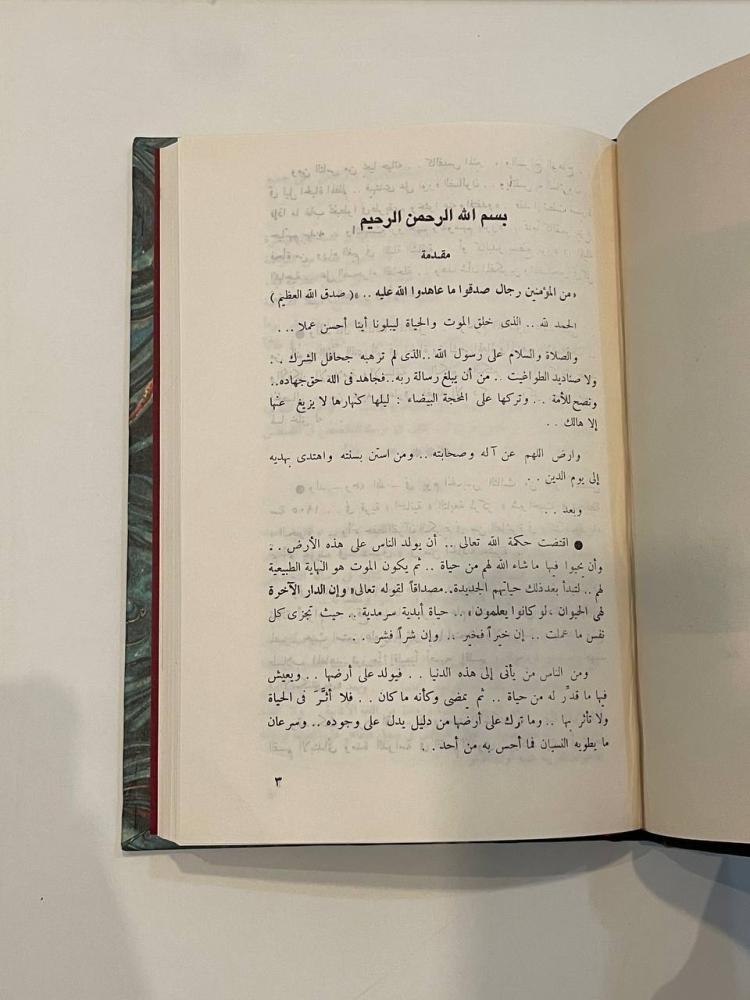 بسم الله الرحمن الرحيم
مقدمة
« من المؤمنين رجال صدقوا ما عاهدوا الله عليه .. » ( صدق الله العظيم )
الحمد لله .. الذى خلق الموت والحياة ليبلونا أينا أحسن عملا . .
والصلاة والسلام على رسول الله .. الذى لم ترهبه جحافل الشرك . .
ولا صناديد الطواغيت .. من أن يبلغ رسالة ربه .. فجاهد فى الله حق جهاده ..
ونصح للأمة . . وتركها على المحجة البيضاء : ليلها كنهارها لا يزيغ عنها
إلا هالك . .
وارض اللهم عن آله وصحابته .. ومن استن بسنته واهتدى بهديه
إلى يوم الدين . .
وبعد . .
● اقتضت حكمة الله تعالى .. أن يولد الناس على هذه الأرض . .
وأن يحيوا فيها ما شاء الله لهم من حياة .. ثم يكون الموت هو النهاية الطبيعية
لهم .. لتبدأ بعد ذلك حياتهم الجديدة .. مصداقاً لقوله تعالى « وإن الدار الآخرة
لهى الحيوان ، لو كانوا يعلمون » .. حياة أبدية سرمدية .. حيث تجزى كل
نفس ما عملت .. إن خيراً فخير .. وإن شراً فشر . .
ومن الناس من يأتى إلى هذه الدنيا . . فيولد على أرضها . . ويعيش
فيها ما قدِّر له من حياة .. ثم يمضى وكأنه ما كان . . فلا أثَّرَ فى الحياة
ولا تأثر بها .. وما ترك على أرضها من دليل يدل على وجوده .. وسرعان
ما يطويه النسيان فما أحس به من أحد . .
٣